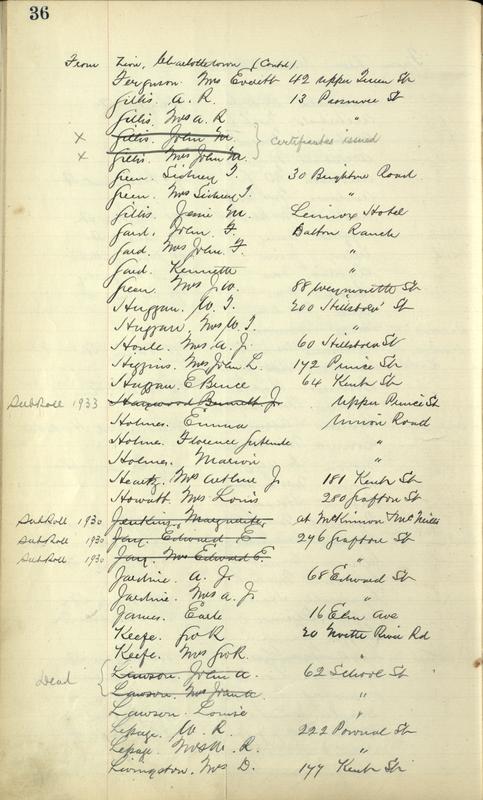 36
From Zion, Charlottetown (Contd)
Ferguson Mrs Everett 42 Upper Queen St
Gillis. A. R. 13 Passmore St
Gillis. Mrs A. R "
x Gillis. John M. } Certificates issued
x Gillis. Mrs John M.
Green. Sidney T. 30 Brighton Road
Green. Mrs Sidney T. "
Gillis. Jessie M. Lennox Hotel
Gard. John F. Dalton Ranch
Gard. Mrs John F. "
Gard. Kenneth "
Green Mrs J. W. 88 Weymouth St
Huggan. W. T. 200 Hillsboro' St
Huggan, Mrs W. T. "
Houle. Mrs A. J. 60 Hillsboro St
Higgins. Mrs John L. 172 Prince St
Huggan. E Bruce 64 Kent St
SubRoll 1933 Haywood Bennett Jr Upper Prince St
Holmes. Emma Union Road
Holmes. Florence Gertrude "
Holmes. Marion "
Heartz. Mrs Arthur J 181 Kent St
Howatt. Mrs Louis 280 Grafton St
SubRoll 1930 Jenkins, Marguerite, at McKinnon & McNeills
SubRoll 1930 Jay. Edward E 276 Grafton St
SubRoll 1930 Jay. Mrs Edward E. "
Jardine. A. J. 68 Edward St
Jardine. Mrs A. J. "
James. Earle 16 Elm Ave
Keefe. Geo R 20 North River Rd
Keefe. Mrs Geo R.
Dead { Lawson. John A. 62 School St
Lawson. Mrs John A. "
Lawson. Louise "
Lepage. W. R. 222 Pownal St
Lepage. Mrs W. R. "
Livingston. Mrs D. 177 Kent St